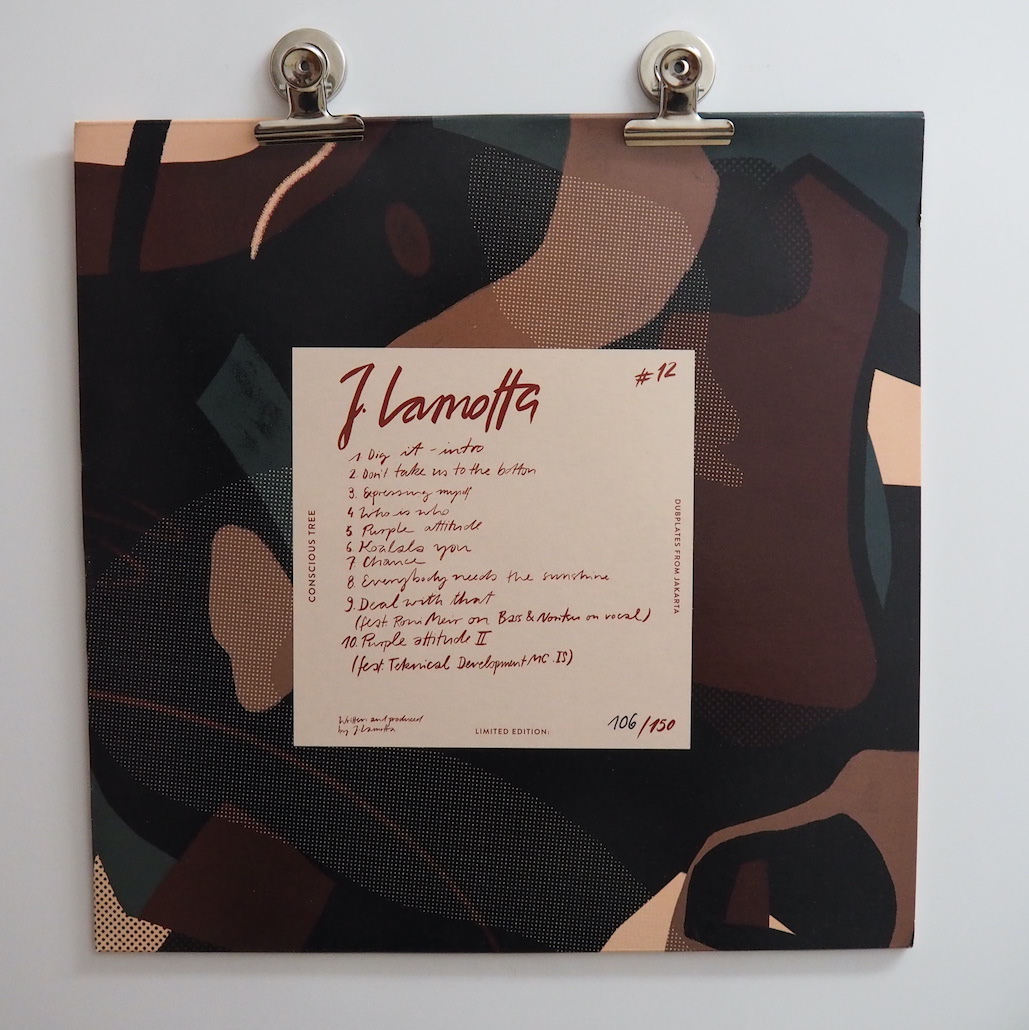 J. Lamotta
#12
1 Dig it - intro
2. Don't take us to the bottom
3. Expressing myself
4 Who is who
5 Purple attitude
6 Koalals you
7 Chance
8. Everybody needs the sunshine
9. Deal with that
(feat. Roni Meir on Bass & on vocal)
10. Purple attitude II
(feat. Teknical Development MC. IS)
CONSCIOUS TREE
DUBPLATES FROM JAKARTA
Written and produced
by J. Lamotta
LIMITED EDITION:
106/150